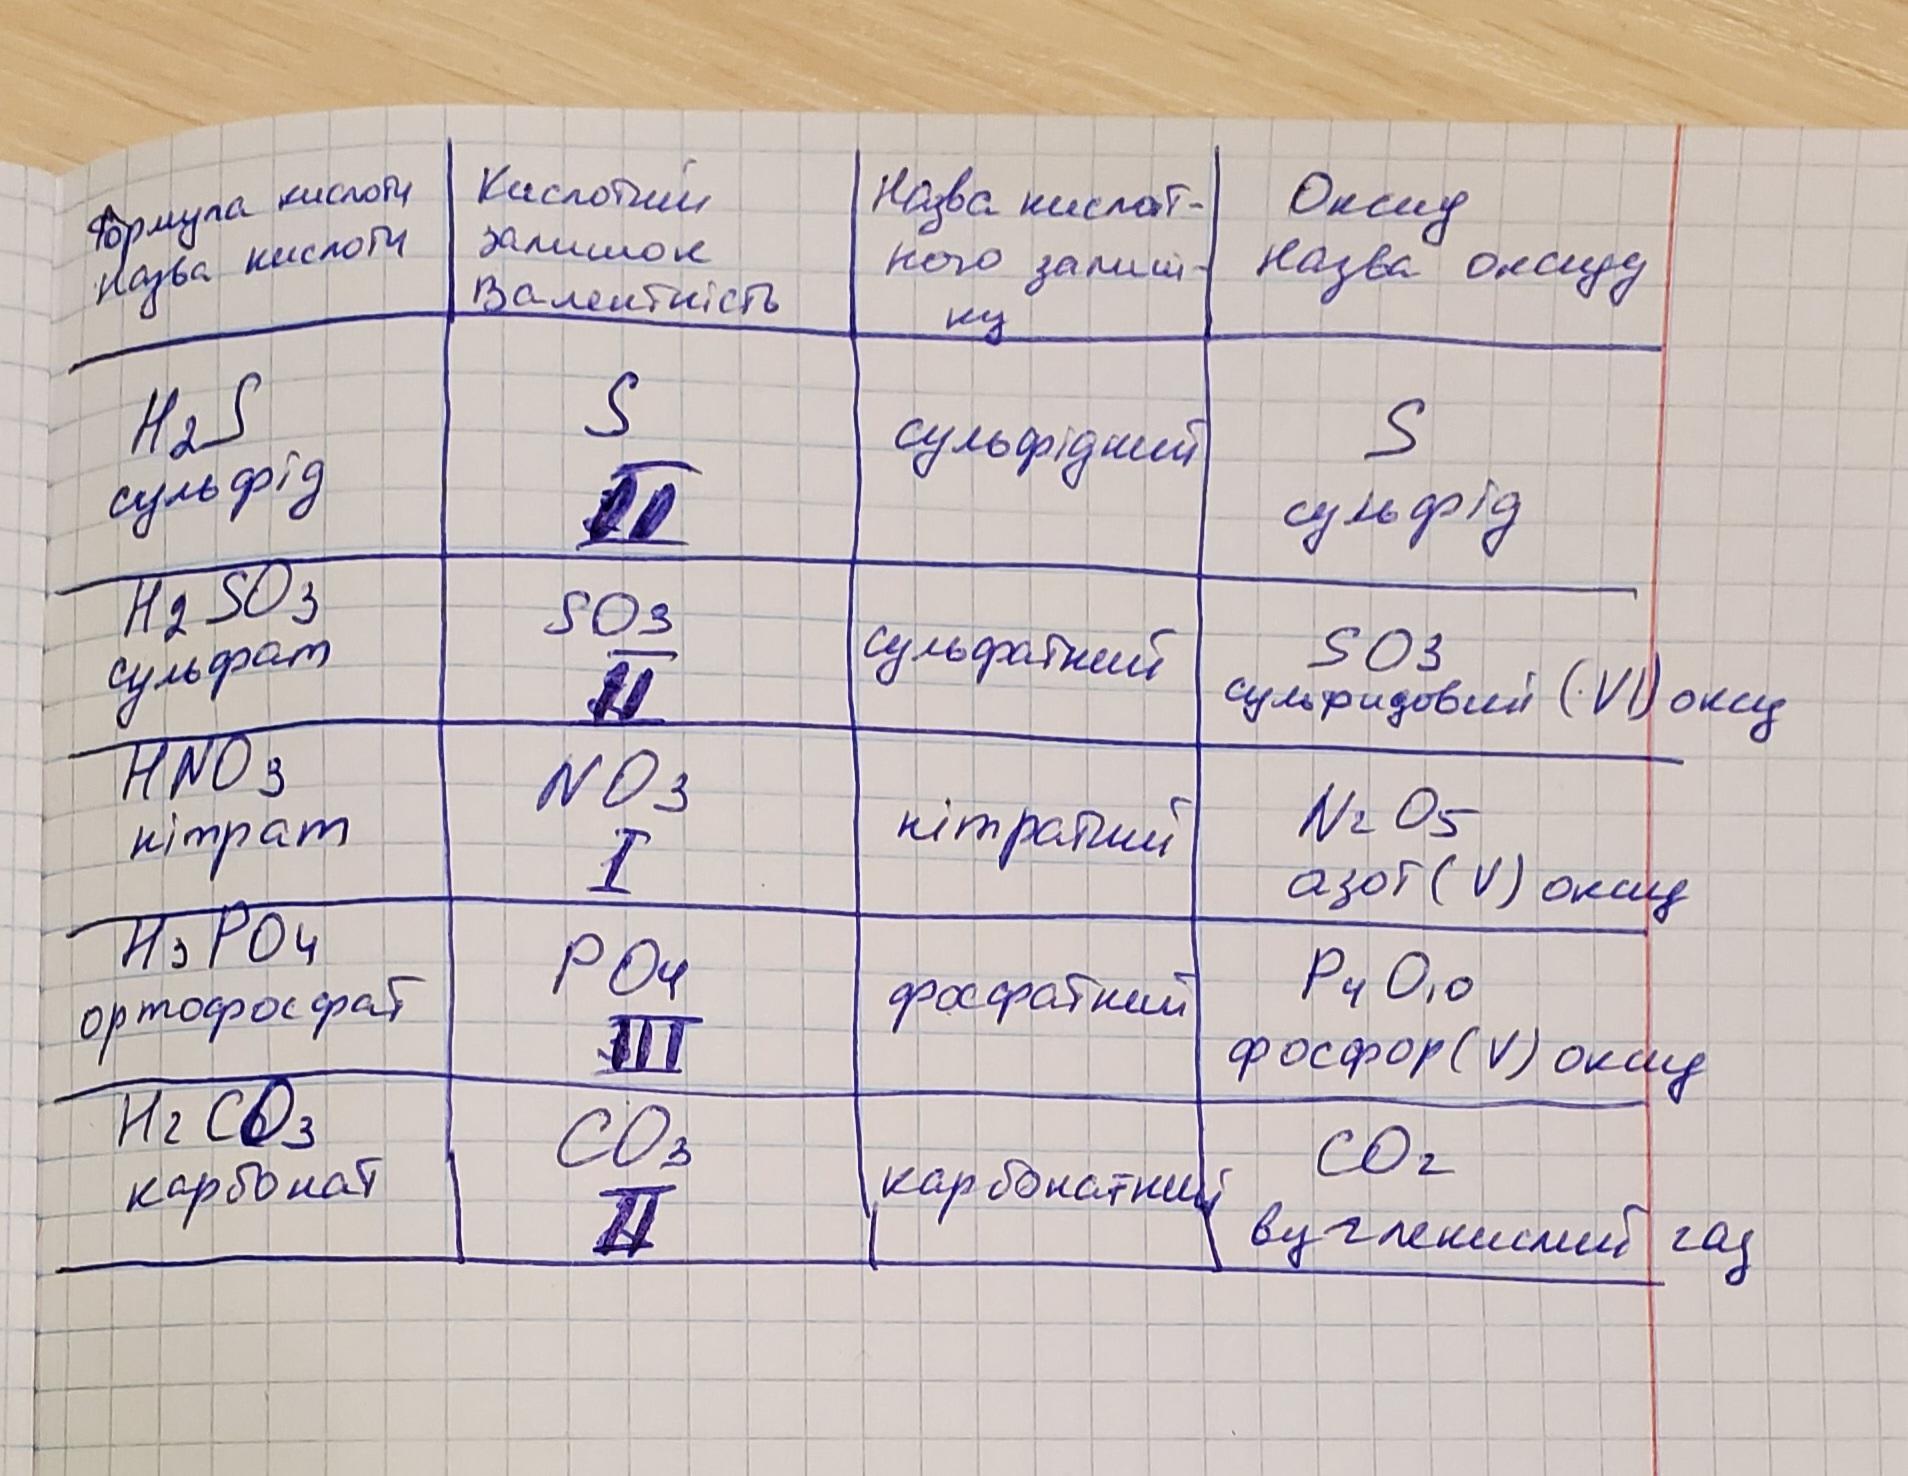 Формула кислоти
назва кислоти
Кислотний
залишок
Валентність
Назва кислот-
ного залиш-
ку
Оксид
Назва оксиду
H2S
сульфід
S
II
сульфідний
S
сульфід
H2SO3
сульфат
SO3
II
сульфатний
SO3
сульфидовий (VI) оксид
HNO3
нітрат
NO3
I
нітратний
N2O5
азот (V) оксид
H3PO4
ортофосфат
PO4
III
фосфатний
P4O10
фосфор (V) оксид
H2CO3
карбонат
CO3
II
карбонатний
CO2
вуглекислий газ